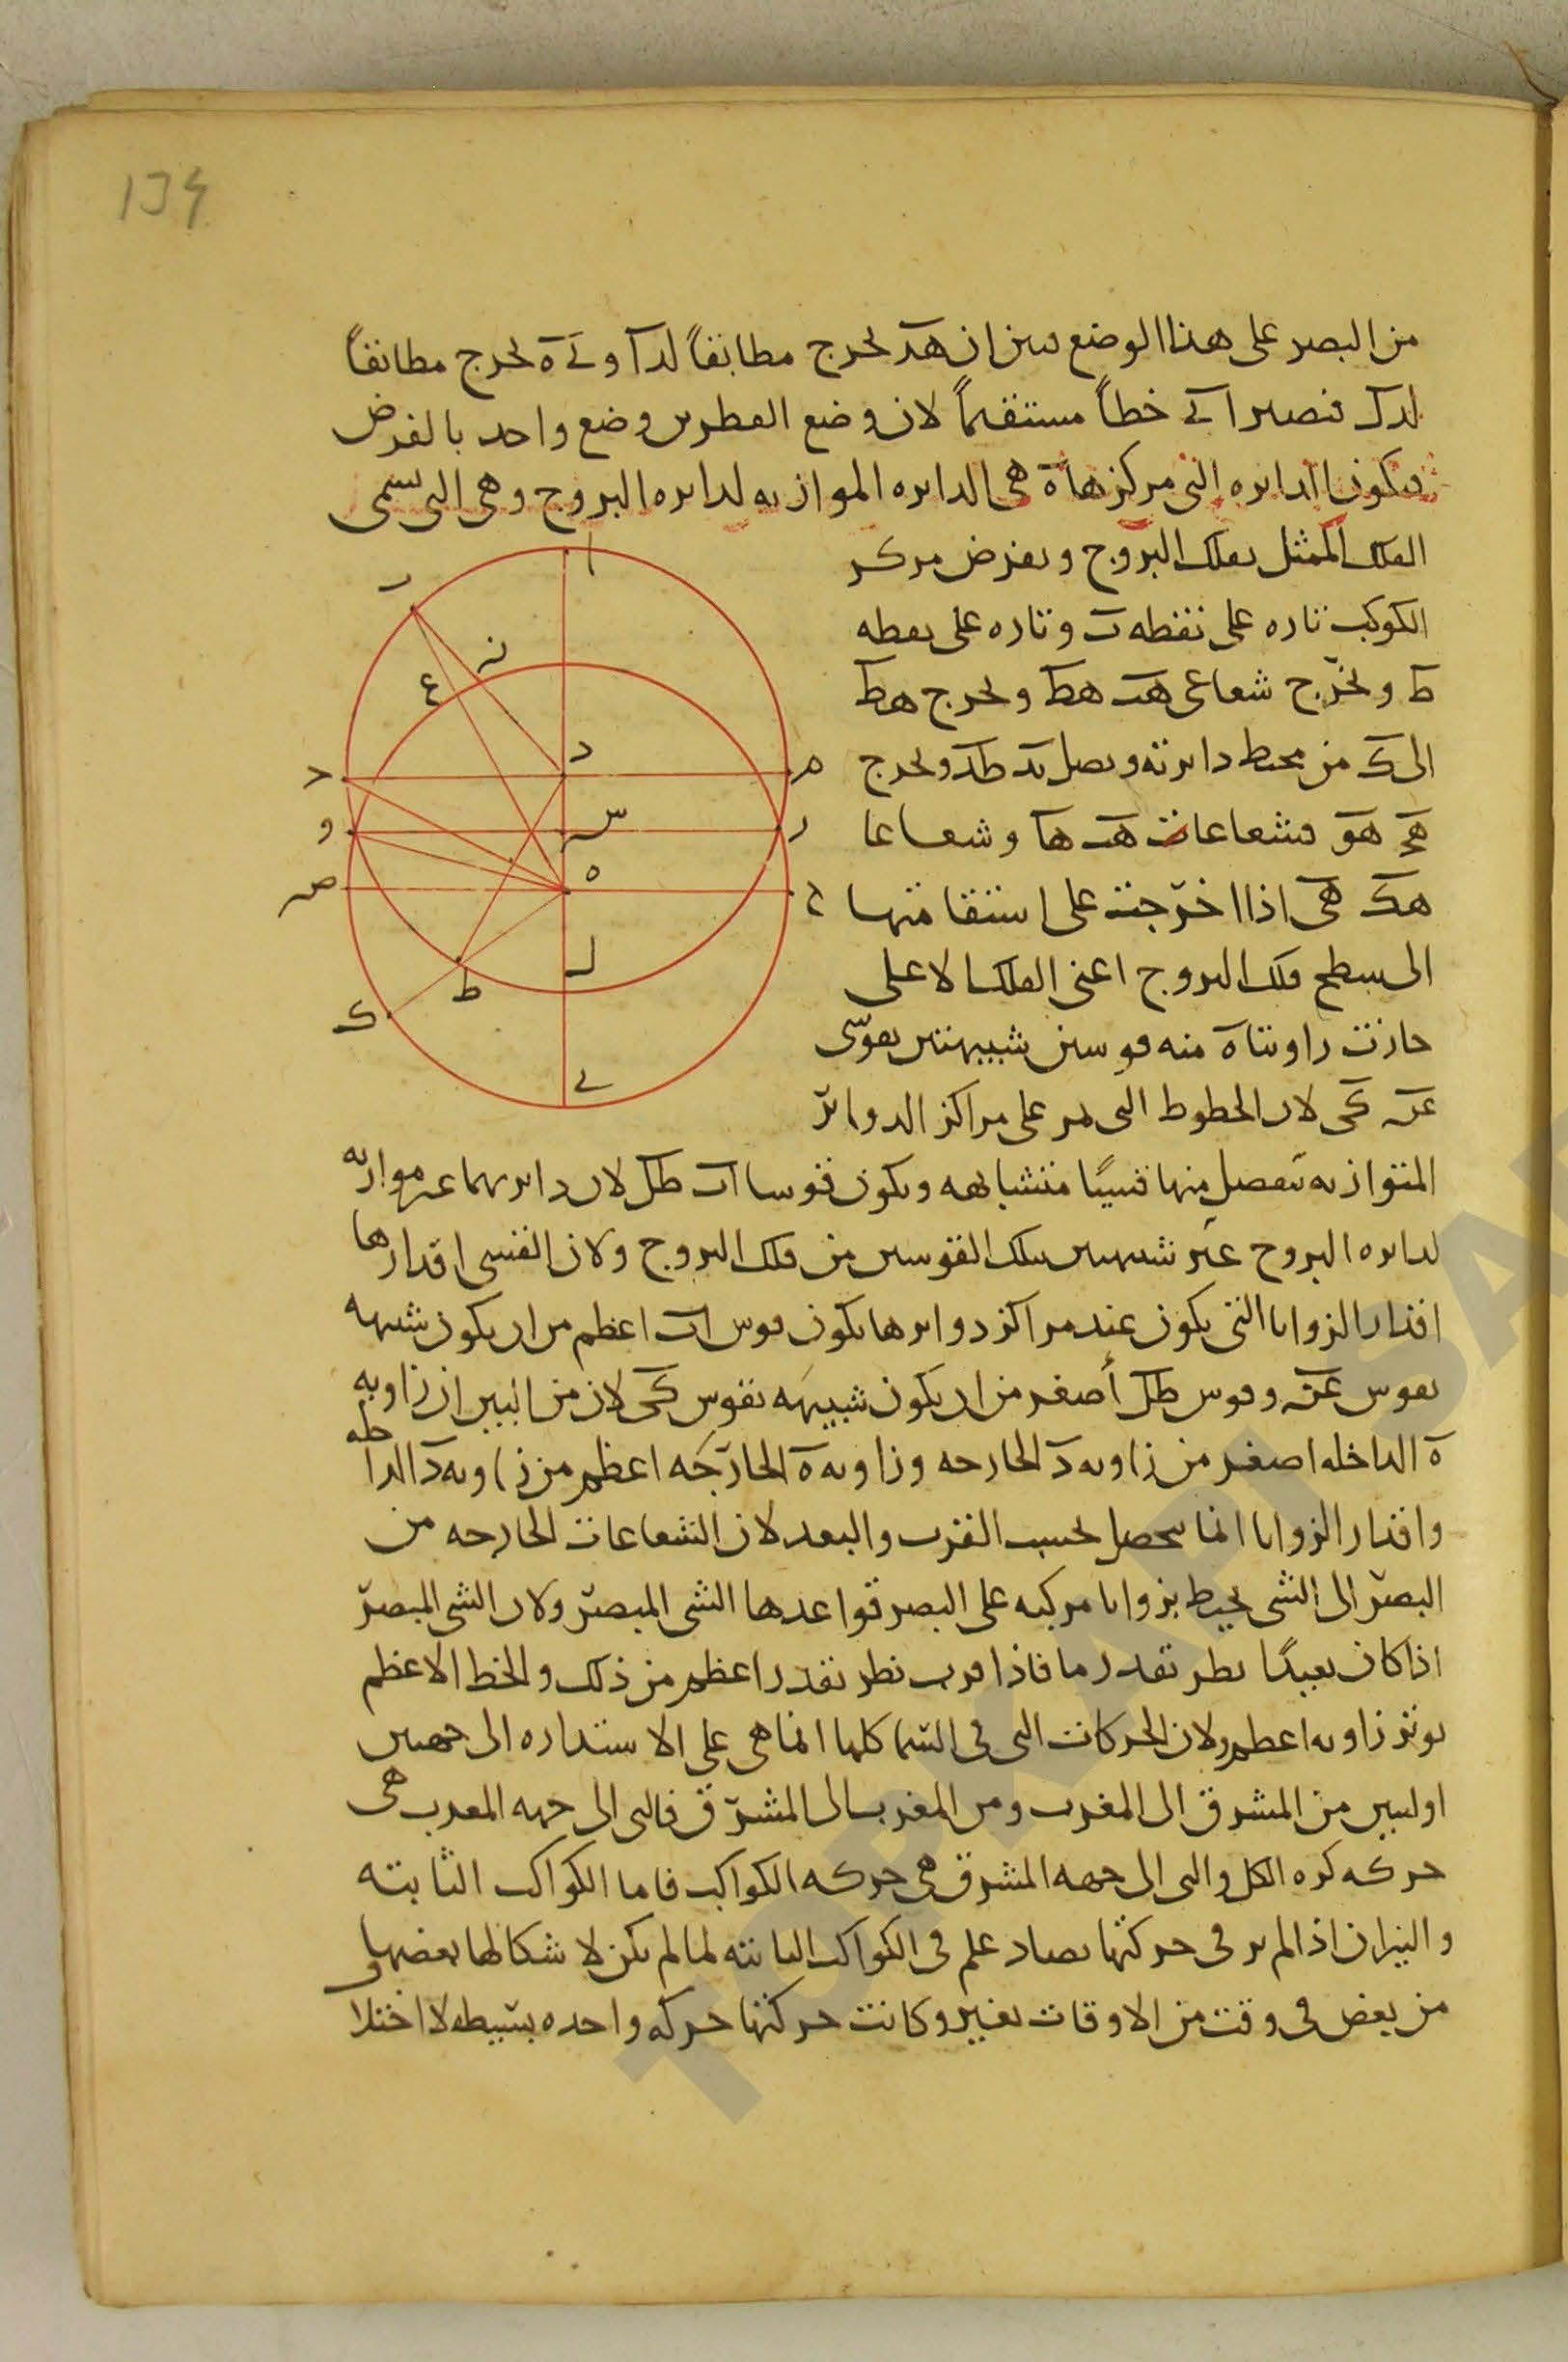 134
من البصر على هذا الوضع فبين ان هد يخرج مطابقاً لدا و ى ه يخرج مطابقاً
لدل فتصير ا ى خطاً مستقيماً لان وضع القطرين وضع واحد بالفرض
فيكون الدايره التى مركزها ه هى الدايره الموازيه لدايره البروج وهى التى تسمى
الفلك الممثل بفلك البروج ونفرض مركز
الكوكب تاره على نقطه ب وتاره على نقطه
ط ونخرج شعاعى هب هط ونخرج هط
الى ك من محيط دايرته ونصل بد طد ونخرج
هج هو فشعاعات هب ها وشعاعا
هك هى اذا اخرجت على استقامتها
الى سطح فلك البروج اعنى الفلك الاعلى
حازت زاويتا ه منه قوسين شبيهتين بقوسى
كى لان الخطوط التى تمر على مراكز الدواير
المتوازيه تفصل منها قسيًا متشابهه ويكون قوسا اب طل لان دايرتهما غير موازيه
لدايره البروج غير شبيهتين بتلك القوسين من فلك البروج ولان القسى اقدارها
اقدار الزوايا التى يكون عند مراكز دوايرها يكون قوس اب اعظم من ان يكون شبيهه
بقوس وقوس طل أصغر من ان يكون شبيهه بقوس كى لان من البين ان زاويه
ه الداخله اصغر من زاويه د الخارجه وزاويه ه الخارجه اعظم من زاويه د الداخله
واقدار الزوايا انما يحصل بحسب القرب والبعد لان الشعاعات الخارجه من
البصر الى الشى يحيط بزوايا مركبه على البصر قواعدها الشى المبصر ولان الشى المبصر
اذا كان بعيدًا نظر بقدر ما فاذا قرب نظر بقدر اعظم من ذلك والخط الاعظم
يوتر زاويه اعظم ولان الحركات التى فى السما كلها انما هى على الاستداره الى جهتين
اوليين من المشرق الى المغرب ومن المغرب الى المشرق فالتى الى جهه المغرب هى
حركه كره الكل والتى الى جهه المشرق هى حركه الكواكب فاما الكواكب الثابته
والنيران اذا لم ير فى حركتها تضاد علم فى الكواكب الثابته لما لم يكن لاشكالها بعضها
من بعض فى وقت من الاوقات تغيير وكانت حركتها حركه واحده بسيطه لا اختلا
ا
ب
ز
ع
د
ح
م
س
و
ر
ه
ص
ل
ط
ك
ى
TOPKAPI SA